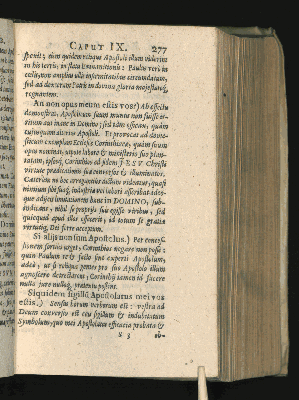 CAPUT IX. 277
spexit; cum quidem reliqui Apostoli illum viderint
in his terris, in statu Exinanitionis: Paulus verò in
cœlis, non amplius ullis infirmitatibus circumdatum,
sed ad dexteram Patris in divina gloria majestatéq;
regnantem.
An non opus meum estis vos?) Ab effectu
demonstrat, Apostolicum suum munus non fuisse
in Domino; sed idem efficax, quàm
cujusquam alterius Apostoli. Et provocat ad
exemplum Ecclesiæ Corinthiacæ, quàm suum
opus nominat, utpote labore & ministerio suo plan-
tatam, ipsosq; Corinthios ad fidem JESU Christi
virtute prædicationis suæ conversos & illuminatos.
Cæterùm ne hoc arrogantius dictum videatur, quasi
nimium sibi suæq; industriæ vel labori asscribat
adjecit limitationem hanc in DOMINO, sub-
indicans, nihil se propriis suis egisse viribus, sed
quicquid apud illos effecerit, id totum se gratiæ
virtutiq; Dei ferre acceptum.
Si aliis non sum Apostolus.)
seriò urget; Corinthios negare non posse:
quin Paulum re & facto sint experti Apostolum,
adeò, ut si reliquæ gentes pro suo Apostolo illum
agnoscere detrectarent, Corinthii tamen id facere
nullo jure nullóq; prætextu possent.
Siquidem sigillũ Apostolatus mei vos
estis.) Sensus horum verborum est: vestra ad
Deum conversio est ceu sigillum & indubitatum
Symbolum, quo mei Apostolatus efficacia probata &
S 3